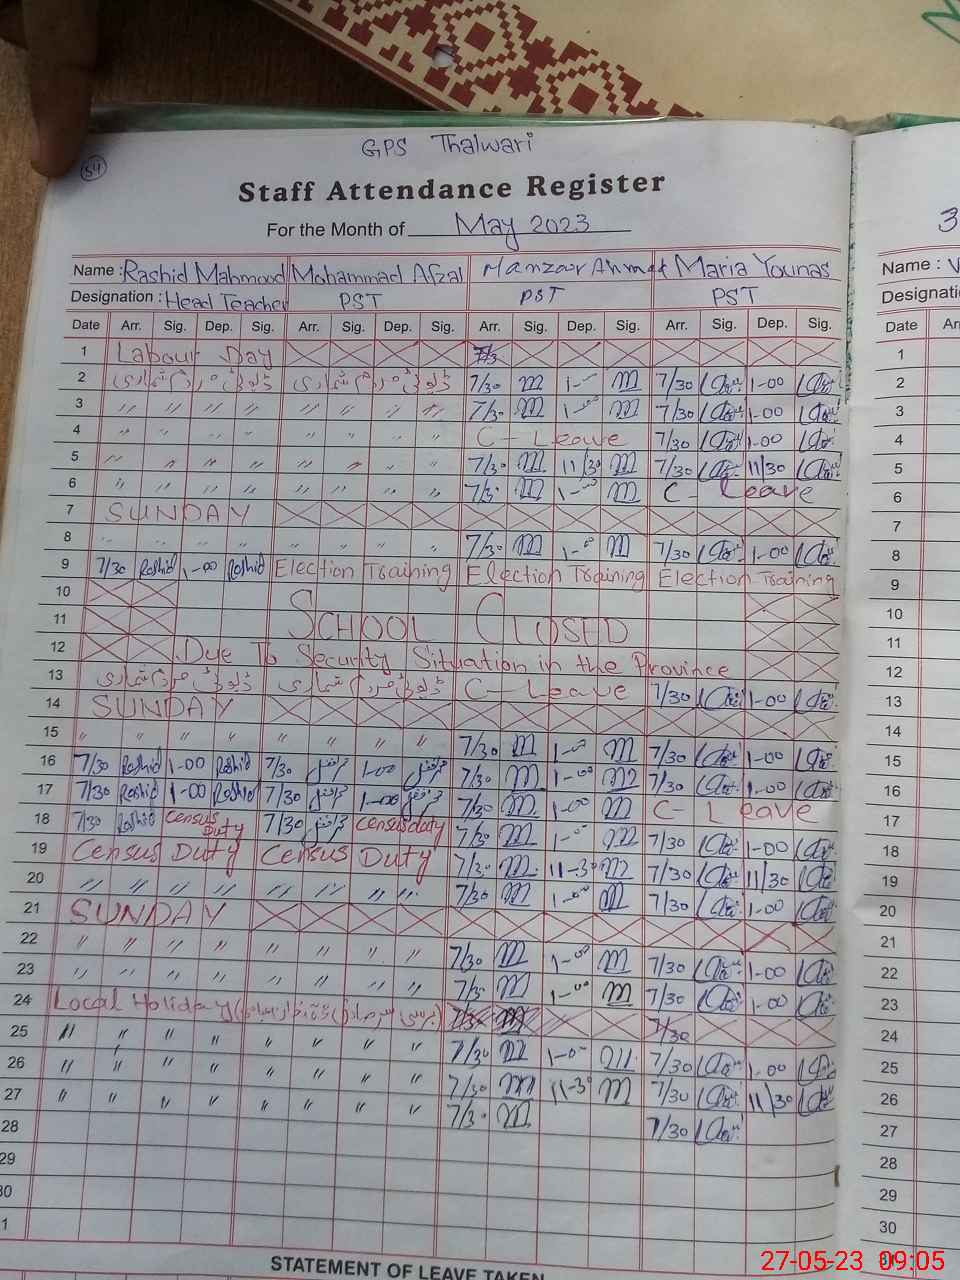 GPS Thalwari
54
Staff Attendance Register
For the Month of May 2023
Name : Rashid Mahmood Mohammad Afzal Manzoor Ahmad Maria Younas
Designation : Head Teacher PST PST PST
Date Arr. Sig. Dep. Sig. Arr. Sig. Dep. Sig. Arr. Sig. Dep. Sig. Arr. Sig. Dep. Sig.
1 Labour Day 7/3
2 ڈیوٹی مردم شماری ڈیوٹی مردم شماری 7/30 M 1-00 M 7/30 1-00
3 " " " " " " " " 7/30 M 1-00 M 7/30 1-00
4 " " " " " " " " C-Leave 7/30 1-00
5 " " " " " " " " 7/30 M 11/30 M 7/30 11/30
6 " " " " " " " " 7/30 M 1-00 M C-Leave
7 SUNDAY
8 " " " " " " " " 7/30 M 1-00 M 7/30 1-00
9 7/30 Rashid 1-00 Rashid Election Training Election Training Election Training
10
11 SCHOOL CLOSED
12 Due To Security Situation in the Province
13 ڈیوٹی مردم شماری ڈیوٹی مردم شماری C-Leave 7/30 1-00
14 SUNDAY
15 " " " " " " " " 7/30 M 1-00 M 7/30 1-00
16 7/30 Rashid 1-00 Rashid 7/30 1-00 7/30 M 1-00 M 7/30 1-00
17 7/30 Rashid 1-00 Rashid 7/30 1-00 7/30 M 1-00 M C-Leave
18 7/30 Rashid Census Duty 7/30 Census duty 7/30 M 1-00 M 7/30 1-00
19 Census Duty Census Duty 7/30 M 11-30 M 7/30 11/30
20 " " " " " " " " 7/30 M 1-00 M 7/30 1-00
21 SUNDAY
22 " " " " " " " " 7/30 M 1-00 M 7/30 1-00
23 " " " " " " " " 7/30 M 1-00 M 7/30 1-00
24 Local Holiday 7/30
25 " " " " " " " " 7/30 M 1-00 M 7/30 1-00
26 " " " " " " " " 7/30 M 11-30 M 7/30 11/30
27 " " " " " " " " 7/30 M 7/30
28
29
30
1
STATEMENT OF LEAVE TAKEN
3
Name :
Designati
Date Ar
1
2
3
4
5
6
7
8
9
10
11
12
13
14
15
16
17
18
19
20
21
22
23
24
25
26
27
28
29
30
27-05-23 09:05